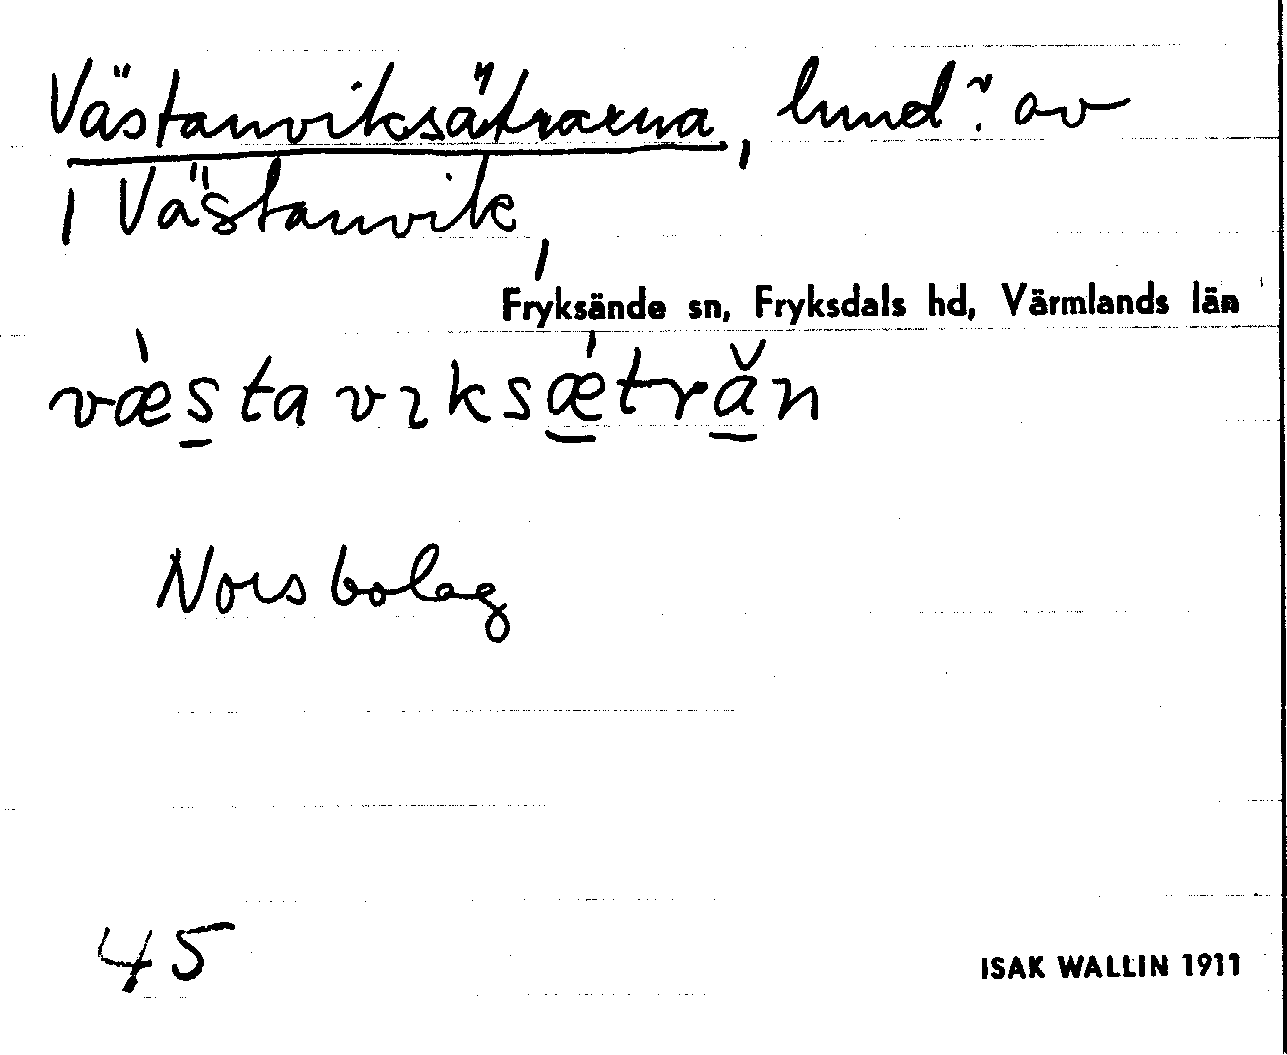 Västanviksätrarna, lund. av
1 Västanvik,
Fryksände sn, Fryksdals hd, Värmlands län
væ̀stavɩksǽtrăn
Nors bolag
45
ISAK WALLIN 1911